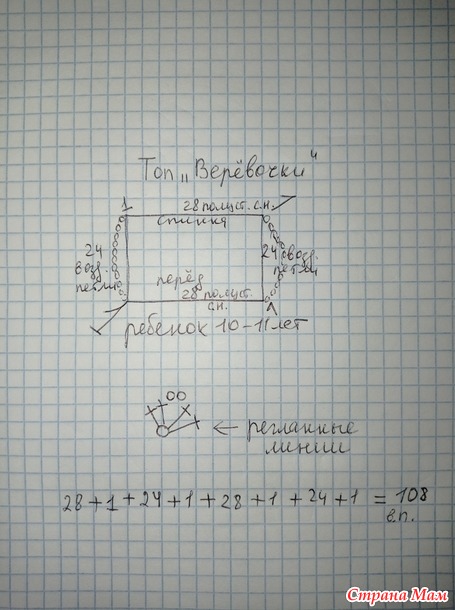 Топ „Верёвочки“
1
28 полуст. с.н.
спинка
24
возд.
петли
24 возд.
петли
перёд
28 полуст.
с.н.
1
ребенок 10-11 лет
← регланные
линии
28+1+24+1+28+1+24+1 = 108
в.п.
Страна Мам